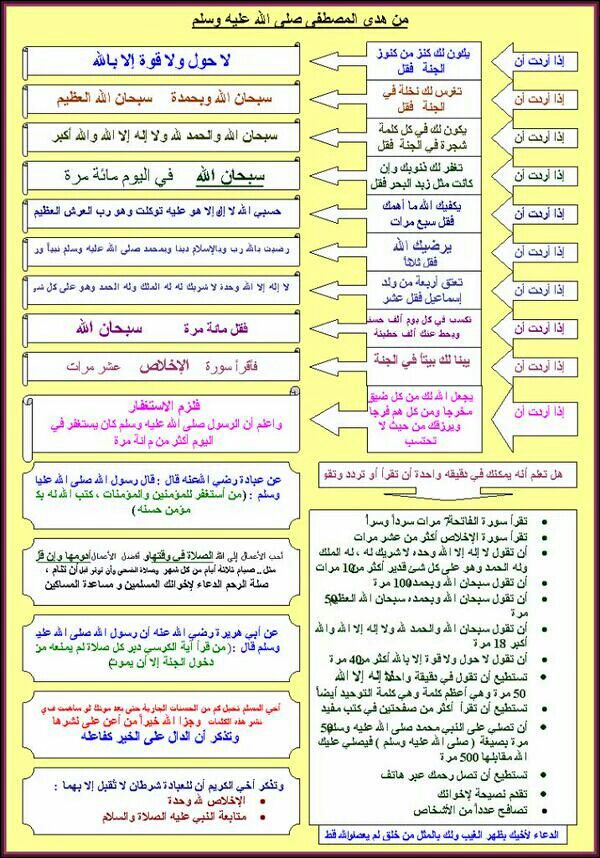 من هدي المصطفى صلى الله عليه وسلم
إذا أردت أن
يكون لك كنز من كنوز
الجنة فقل
لا حول ولا قوة إلا بالله
إذا أردت أن
تغرس لك نخلة في
الجنة فقل
سبحان الله وبحمدة سبحان الله العظيم
إذا أردت أن
يكون لك في كل كلمة
شجرة في الجنة فقل
سبحان الله والحمد لله ولا إله إلا الله والله أكبر
إذا أردت أن
تغفر لك ذنوبك وإن
كانت مثل زبد البحر فقل
سبحان الله في اليوم مائة مرة
إذا أردت أن
يكفيك الله ما أهمك
فقل سبع مرات
حسبي الله لا إله إلا هو عليه توكلت وهو رب العرش العظيم
إذا أردت أن
يرضيك الله
فقل ثلاثاً
رضيت بالله رب وبالإسلام دينا وبمحمد صلى الله عليه وسلم نبياً ور
إذا أردت أن
تعتق أربعة من ولد
إسماعيل فقل عشر
لا إله إلا الله وحدة لا شريك له له الملك وله الحمد وهو على كل شي
إذا أردت أن
تكسب في كل يوم ألف حسنة
ويحط عنك ألف خطيئة
فقل مائة مرة سبحان الله
إذا أردت أن
يبنا لك بيتاً في الجنة
فاقرأ سورة الإخلاص عشر مرات
إذا أردت أن
يجعل الله لك من كل ضيق
مخرجا ومن كل هم فرجا
ويرزقك من حيث لا
تحتسب
فلزم الاستغفار
واعلم أن الرسول صلى الله عليه وسلم كان يستغفر في
اليوم أكثر من مائة مرة
هل تعلم أنه يمكنك في دقيقه واحدة أن تقرأ أو تردد وتقو
تقرأ سورة الفاتحة 7 مرات سرداً وسراً
تقرأ سورة الإخلاص أكثر من عشر مرات
أن تقول لا إله إلا الله وحده لا شريك له ، له الملك
وله الحمد وهو على كل شئ قدير أكثر من 10 مرات
أن تقول سبحان الله وبحمده 100 مرة
أن تقول سبحان الله وبحمده سبحان الله العظيم 50
مرة
أن تقول سبحان الله والحمد لله ولا إله إلا الله والله
أكبر 18 مرة
أن تقول لا حول ولا قوة إلا بالله أكثر من 40 مرة
تستطيع أن تقول في دقيقة واحدة لا إله إلا الله
50 مرة وهي أعظم كلمة وهي كلمة التوحيد أيضاً
تستطيع أن تقرأ أكثر من صفحتين في كتب مفيد
أن تصلي على النبي محمد صلى الله عليه وسلم 50
مرة بصيغة ( صلى الله عليه وسلم ) فيصلي عليك
الله مقابلها 500 مرة
تستطيع أن تصل رحمك عبر هاتف
تقدم نصيحة لإخوانك
تصافح عدداً من الأشخاص
الدعاء لأخيك بظهر الغيب ولك بالمثل من خلق لم يعصوا الله قط
عن عبادة رضي الله عنه قال : قال رسول الله صلى الله عليا
وسلم : (من أستغفر للمؤمنين والمؤمنات ، كتب الله له بك
مؤمن حسنه )
أحب الأعمال إلى الله الصلاة في وقتها و أفضل الأعمال أدومها وإن قل
مثل .. صيام ثلاثة أيام من كل شهر وصلاة الضحى وأن توتر قبل أن تنام ،
صلة الرحم الدعاء لإخوانك المسلمين و مساعدة المساكين
عن أبي هريرة رضي الله عنه أن رسول الله صلى الله عليا
وسلم قال : (من قرأ آية الكرسي دبر كل صلاة لم يمنعه من
دخول الجنة إلا أن يموت)
أخي المسلم تخيل كم من الحسنات الجارية حتى بعد موتك لو ساهمت في
نشر هذه الكلمات وجزا الله خيراً من أعن على نشرها
وتذكر أن الدال على الخير كفاعله
وتذكر أخي الكريم أن للعبادة شرطان لا تُقبل إلا بهما :
الإخلاص لله وحدة
متابعة النبي عليه الصلاة والسلام